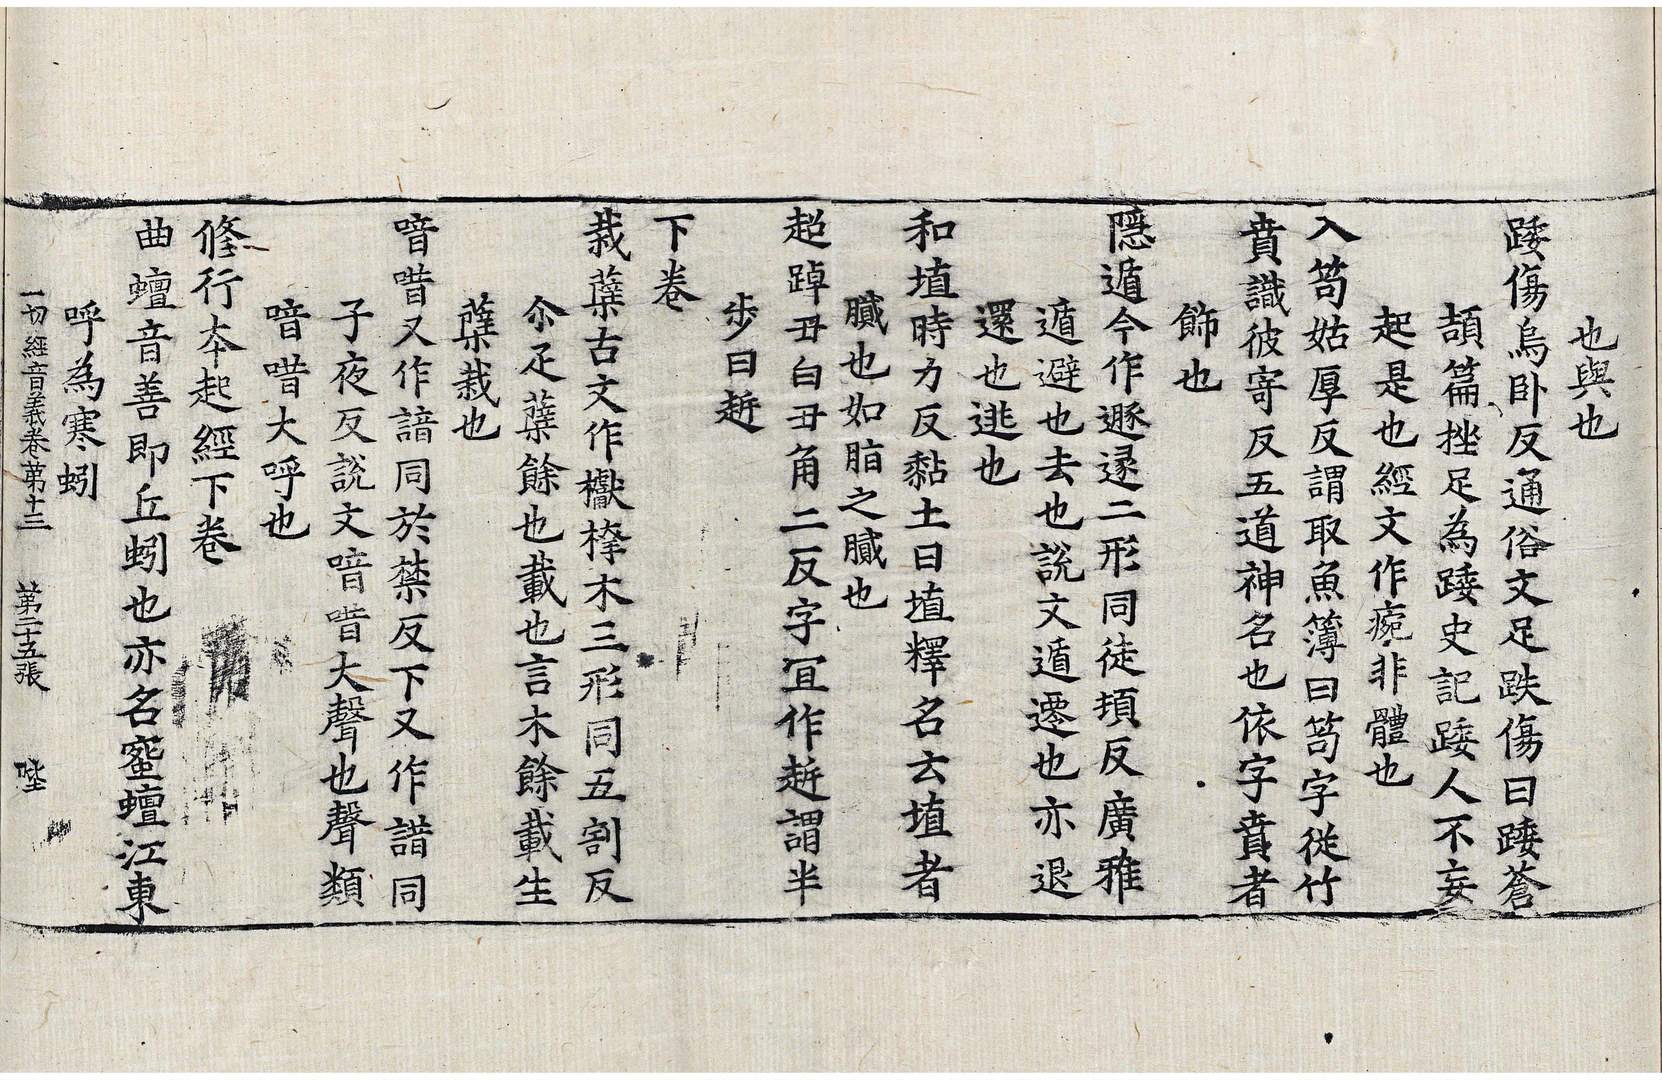 也輿也
踒傷烏卧反通俗文足跌傷曰踒蒼
頡篇挫足為踒史記踒人不妄
起是也經文作㾓非體也
入笱姑厚反謂取魚簿曰笱字從竹
賁識彼寄反五道神名也依字賁者
飾也
隱遁今作遯遂二形同徒頓反廣雅
遁避也去也說文遁遷也亦退
還也逃也
和埴時力反黏土曰埴釋名云埴者
膱也如脂之膱也
超踔丑白丑角二反字冝作趠謂半
步曰趠
下卷
栽蘖古文作巘㭬木三形同五割反
尒疋蘖餘也載也言木餘載生
蘖栽也
喑唶又作諳同於禁反下又作譜同
子夜反說文喑唶大聲也聲類
喑唶大呼也
修行本起經下卷
曲蟺音善即丘蚓也亦名蜜蟺江東
呼為寒蚓
一切經音義卷第十三 第二十五張 陛